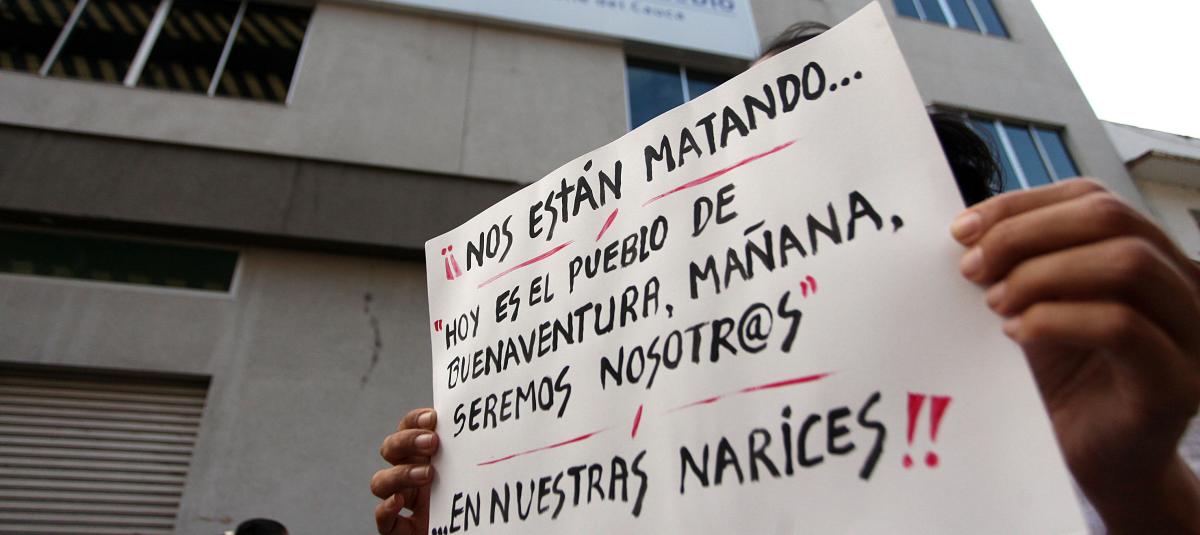 del Cauca
¡¡NOS ESTÁN MATANDO...
"HOY ES EL PUEBLO DE
BUENAVENTURA, MAÑANA,
SEREMOS NOSOTR@S"
...EN NUESTRAS NARICES!!